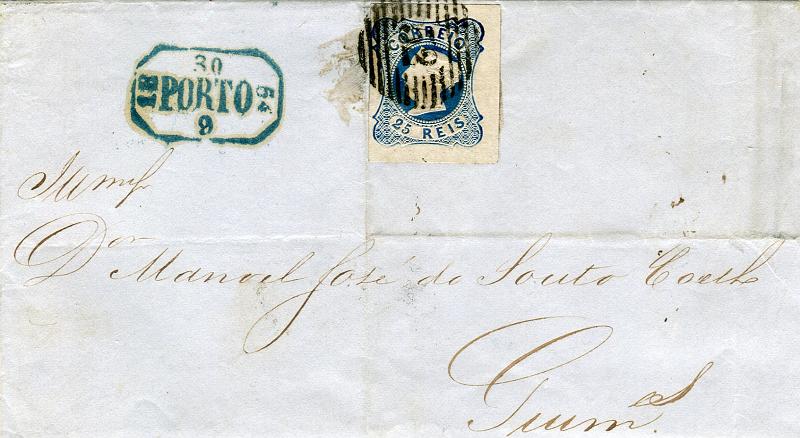 30
18 PORTO 54
9
CORREIO
25 REIS
Dor Manoel José do Souto Coelho
Guim.es